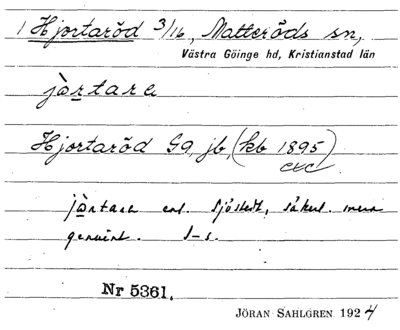 1 Hjortaröd 3/16, Matteröds sn,
Västra Göinge hd, Kristianstad län
jòrtare
Hjortaröd Gg, jb, (kb 1895)
etc
jòrtare enl. Sjöstedt, säkerl. mera
genuint. J-s.
Nr 5361.
JÖRAN SAHLGREN 1924